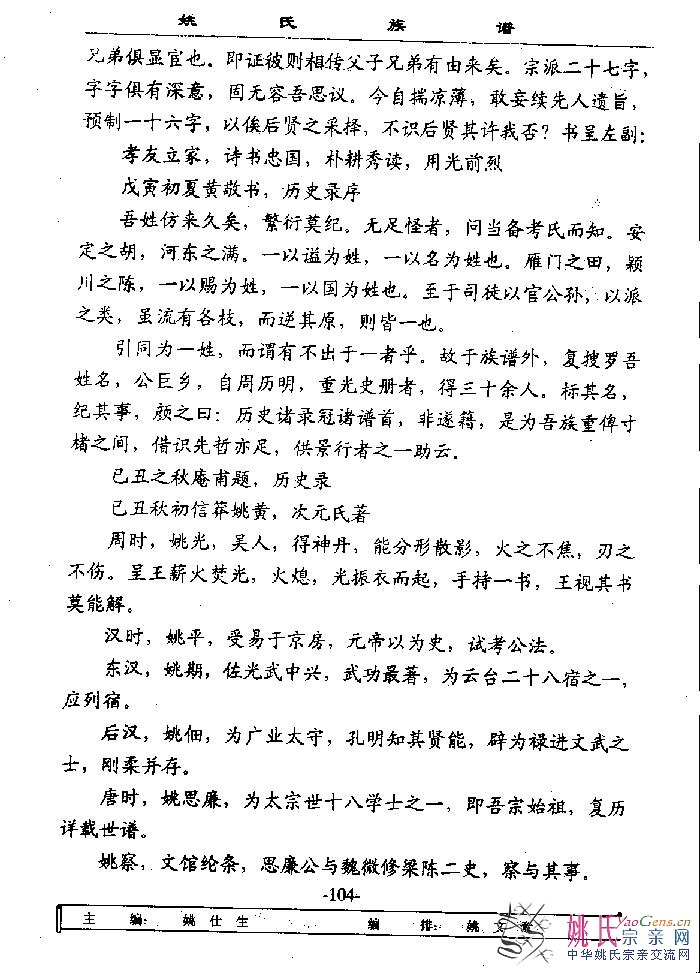 姚氏族谱
兄弟俱显官也。即证彼则相传父子兄弟有由来矣。宗派二十七字，
字字俱有深意，固无容吾思议。今自揣凉薄，敢妄续先人遗旨，
预制一十六字，以俟后贤之采择，不识后贤其许我否？书呈左副：
孝友立家，诗书忠国，朴耕秀读，用光前烈
戊寅初夏黄敬书，历史录序
吾姓仿来久矣，繁衍莫纪。无足怪者，问当备考氏而知。安
定之胡，河东之满。一以谥为姓，一以名为姓也。雁门之田，颖
川之陈，一以赐为姓，一以国为姓也。至于司徒以官公孙，以派
之类，虽流有各枝，而逆其原，则皆一也。
引同为一姓，而谓有不出于一者乎。故于族谱外，复搜罗吾
姓名，公巨乡，自周历明，重光史册者，得三十余人。标其名，
纪其事，颜之曰：历史诸录冠诸谱首，非遂藉，是为吾族重俾寸
楮之间，借识先哲亦足，供景行者之一助云。
已丑之秋庵甫题，历史录
已丑秋初信莽姚黄，次元氏著
周时，姚光，吴人，得神丹，能分形散影，火之不焦，刃之
不伤。呈王薪火焚光，火熄，光振衣而起，手持一书，王视其书
莫能解。
汉时，姚平，受易于京房，元帝以为史，试考公法。
东汉，姚期，佐光武中兴，武功最著，为云台二十八宿之一，
应列宿。
后汉，姚佃，为广业太守，孔明知其贤能，辟为禄进文武之
士，刚柔并存。
唐时，姚思廉，为太宗世十八学士之一，即吾宗始祖，复历
详载世谱。
姚察，文馆纶条，思廉公与魏微修梁陈二史，察与其事。
-104-
主编：姚仕生 编排：姚文
姚氏宗亲网
YaoGens.cn
中华姚氏宗亲交流网